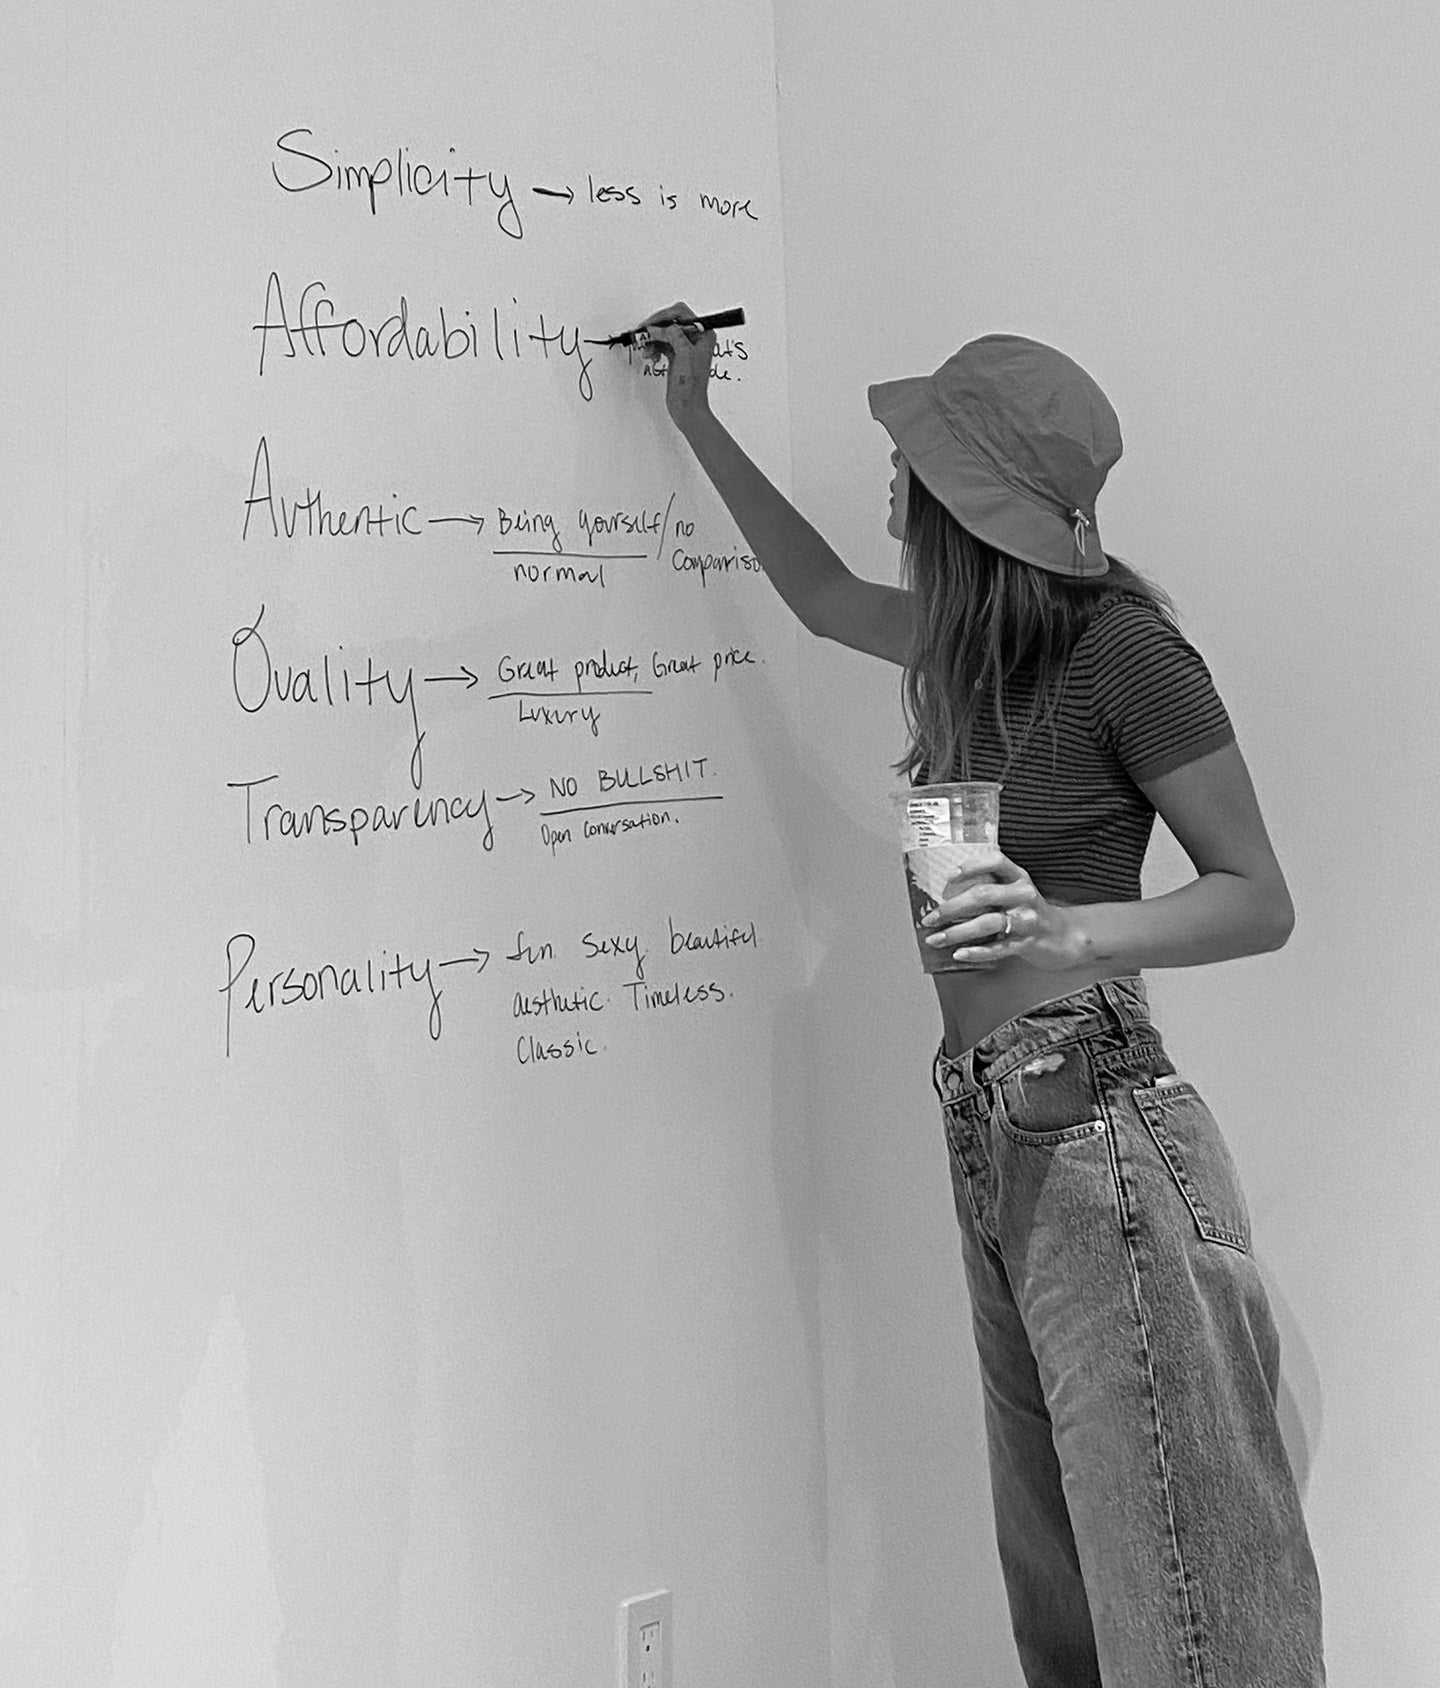 Simplicity → less is more
Affordability →
Authentic → Being yourself / no
normal comparison
Quality → Great product, Great price.
Luxury
Transparency → NO BULLSHIT.
Open conversation.
Personality → fun. sexy. beautiful
aesthetic. Timeless.
Classic.